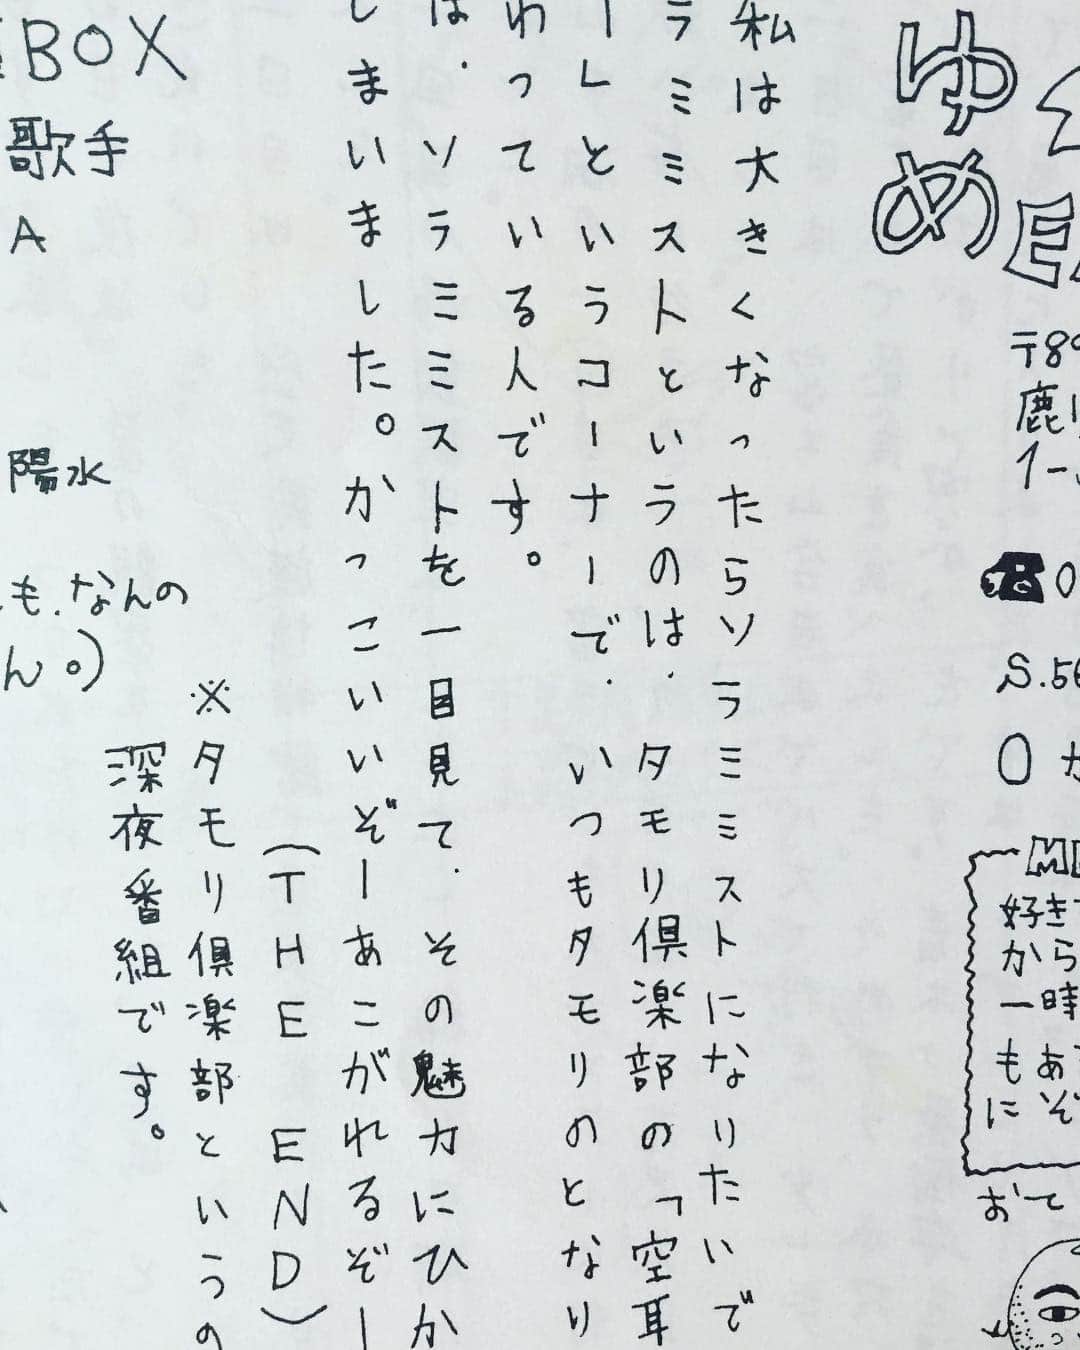 ゆ
め
E
〒89
鹿
1-
☎0
S.56
0
好き
から
一時
もあ
にぞ
おて
私は大きくなったらソラミミストになりたいで
ラミミストというのは、タモリ倶楽部の「空耳
ーレというコーナーで、いつもタモリのとなり
わっている人です。
は、ソラミミストを一目見て、その魅力にひか
しまいました。かっこいいぞーあこがれるぞー
(THE END)
※タモリ倶楽部というの
深夜番組です。
BOX
歌手
A
陽水
も、なんの
ん。)